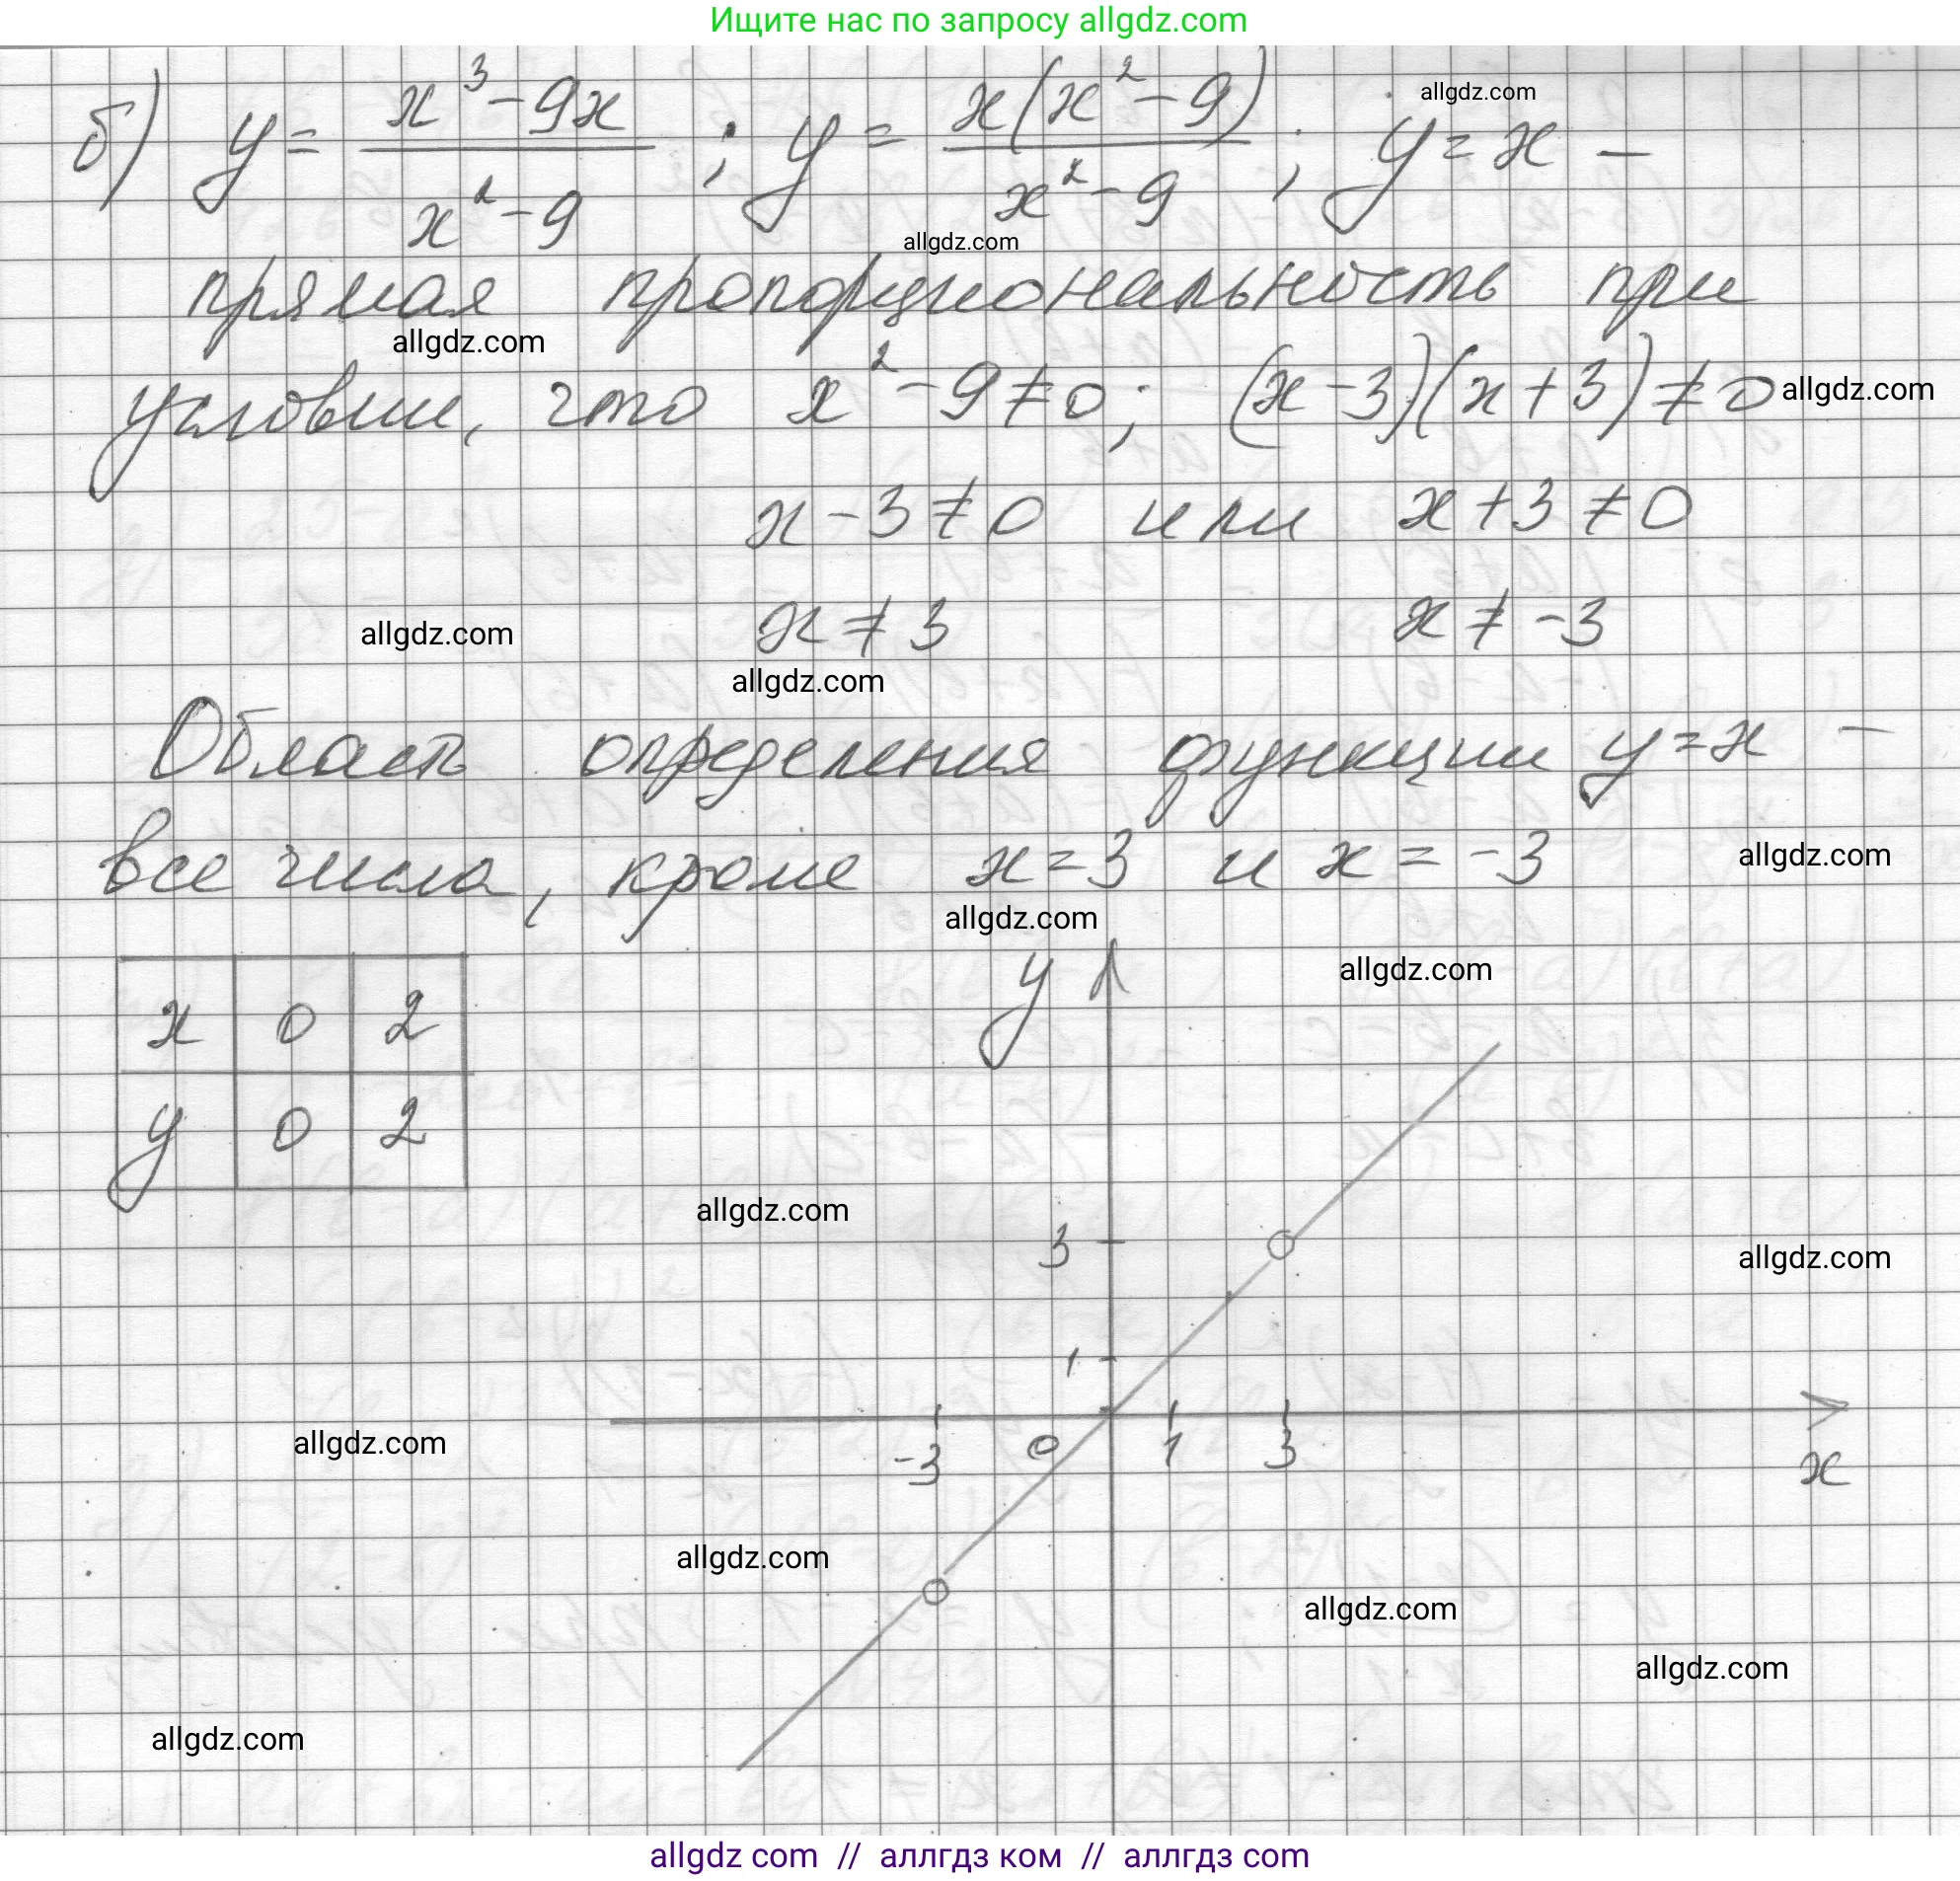 Ищите нас по запросу allgdz.com
б) y = (x³ - 9x)/(x² - 9) ; y = x(x² - 9)/(x² - 9) ; y = x –
allgdz.com
allgdz.com
прямая пропорциональность при
allgdz.com
условии, что x² - 9 ≠ 0; (x - 3)(x + 3) ≠ 0
allgdz.com
x - 3 ≠ 0 или x + 3 ≠ 0
x ≠ 3 x ≠ -3
allgdz.com
allgdz.com
Область определения функции y = x –
все числа, кроме x = 3 и x = -3
allgdz.com
allgdz.com
x 0 2
y 0 2
y
allgdz.com
allgdz.com
3
allgdz.com
1
-3 0 1 3
x
allgdz.com
allgdz.com
allgdz.com
allgdz.com
allgdz.com
allgdz com // аллгдз ком // аллгдз com